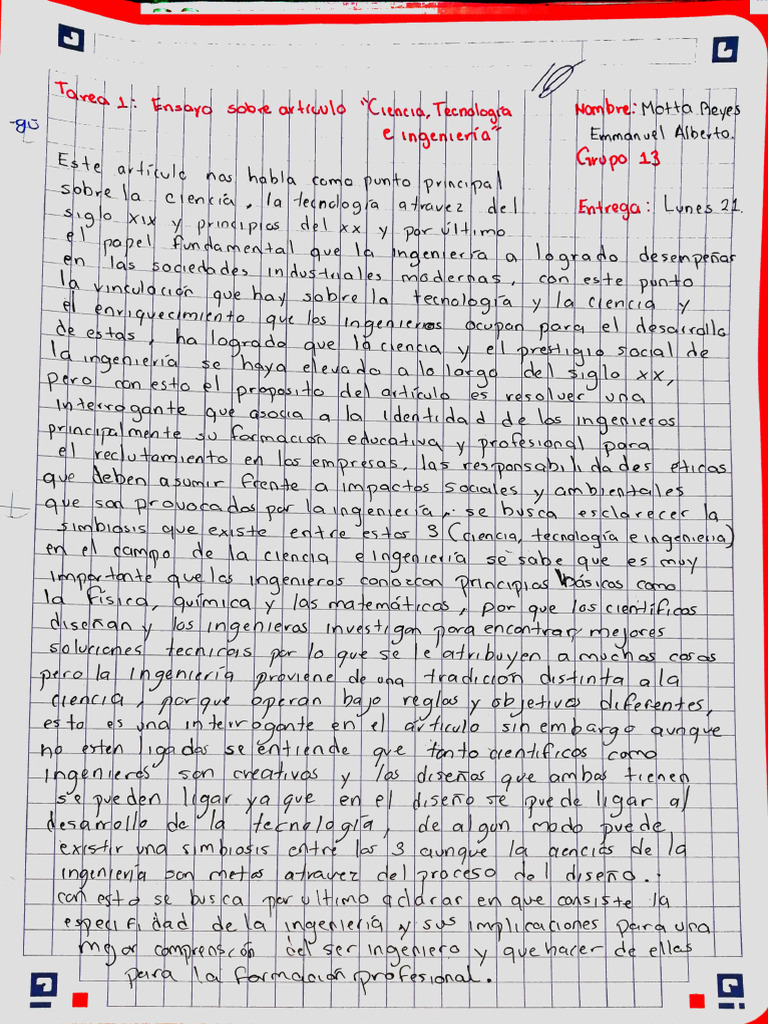 10
Tarea 1: Ensayo sobre artículo "Ciencia, Tecnología
e ingeniería"
Nombre: Motta Reyes
Emmanuel Alberto.
Grupo 13
Entrega: Lunes 21.
-gü
Este artículo nos habla como punto principal
sobre la ciencia, la tecnología atravez del
siglo xix y principios del xx y por último
el papel fundamental que la ingeniería a logrado desempeñar
en las sociedades industriales modernas, con este punto
la vinculación que hay sobre la tecnología y la ciencia y
el enriquecimiento que los ingenieros ocupan para el desarrollo
de estas, ha logrado que la ciencia y el prestigio social de
la ingeniería se haya elevado a lo largo del siglo xx,
pero con esto el proposito del artículo es resolver una
interrogante que asocia a la identidad de los ingenieros
principalmente su formación educativa y profesional para
el reclutamiento en las empresas, las responsabilidades eticas
que deben asumir frente a impactos sociales y ambientales
que son provocados por la ingeniería, se busca esclarecer la
simbiosis que existe entre estos 3 (ciencia, tecnología e ingenieria)
en el campo de la ciencia e ingeniería se sabe que es muy
importante que los ingenieros conozcan principios básicos como
la física, química y las matemáticas, por que los científicos
diseñan y los ingenieros investigan para encontrar mejores
soluciones tecnicas por lo que se le atribuyen a muchas cosas
pero la ingeniería proviene de una tradición distinta a la
ciencia, porque operan bajo reglas y objetivos diferentes,
esto es una interrogante en el artículo sin embargo aunque
no esten ligados se entiende que tanto científicos como
ingenieros son creativos y los diseños que ambos tienen
se pueden ligar ya que en el diseño se puede ligar al
desarrollo de la tecnología, de algun modo puede
existir una simbiosis entre los 3 aunque la ciencias de la
ingeniería con metas atravez del proceso del diseño.
con esto se busca por ultimo aclarar en que consiste la
especifidad de la ingeniería y sus implicaciones para una
mejor comprensión del ser ingeniero y que hacer de ellas
para la formación profesional.